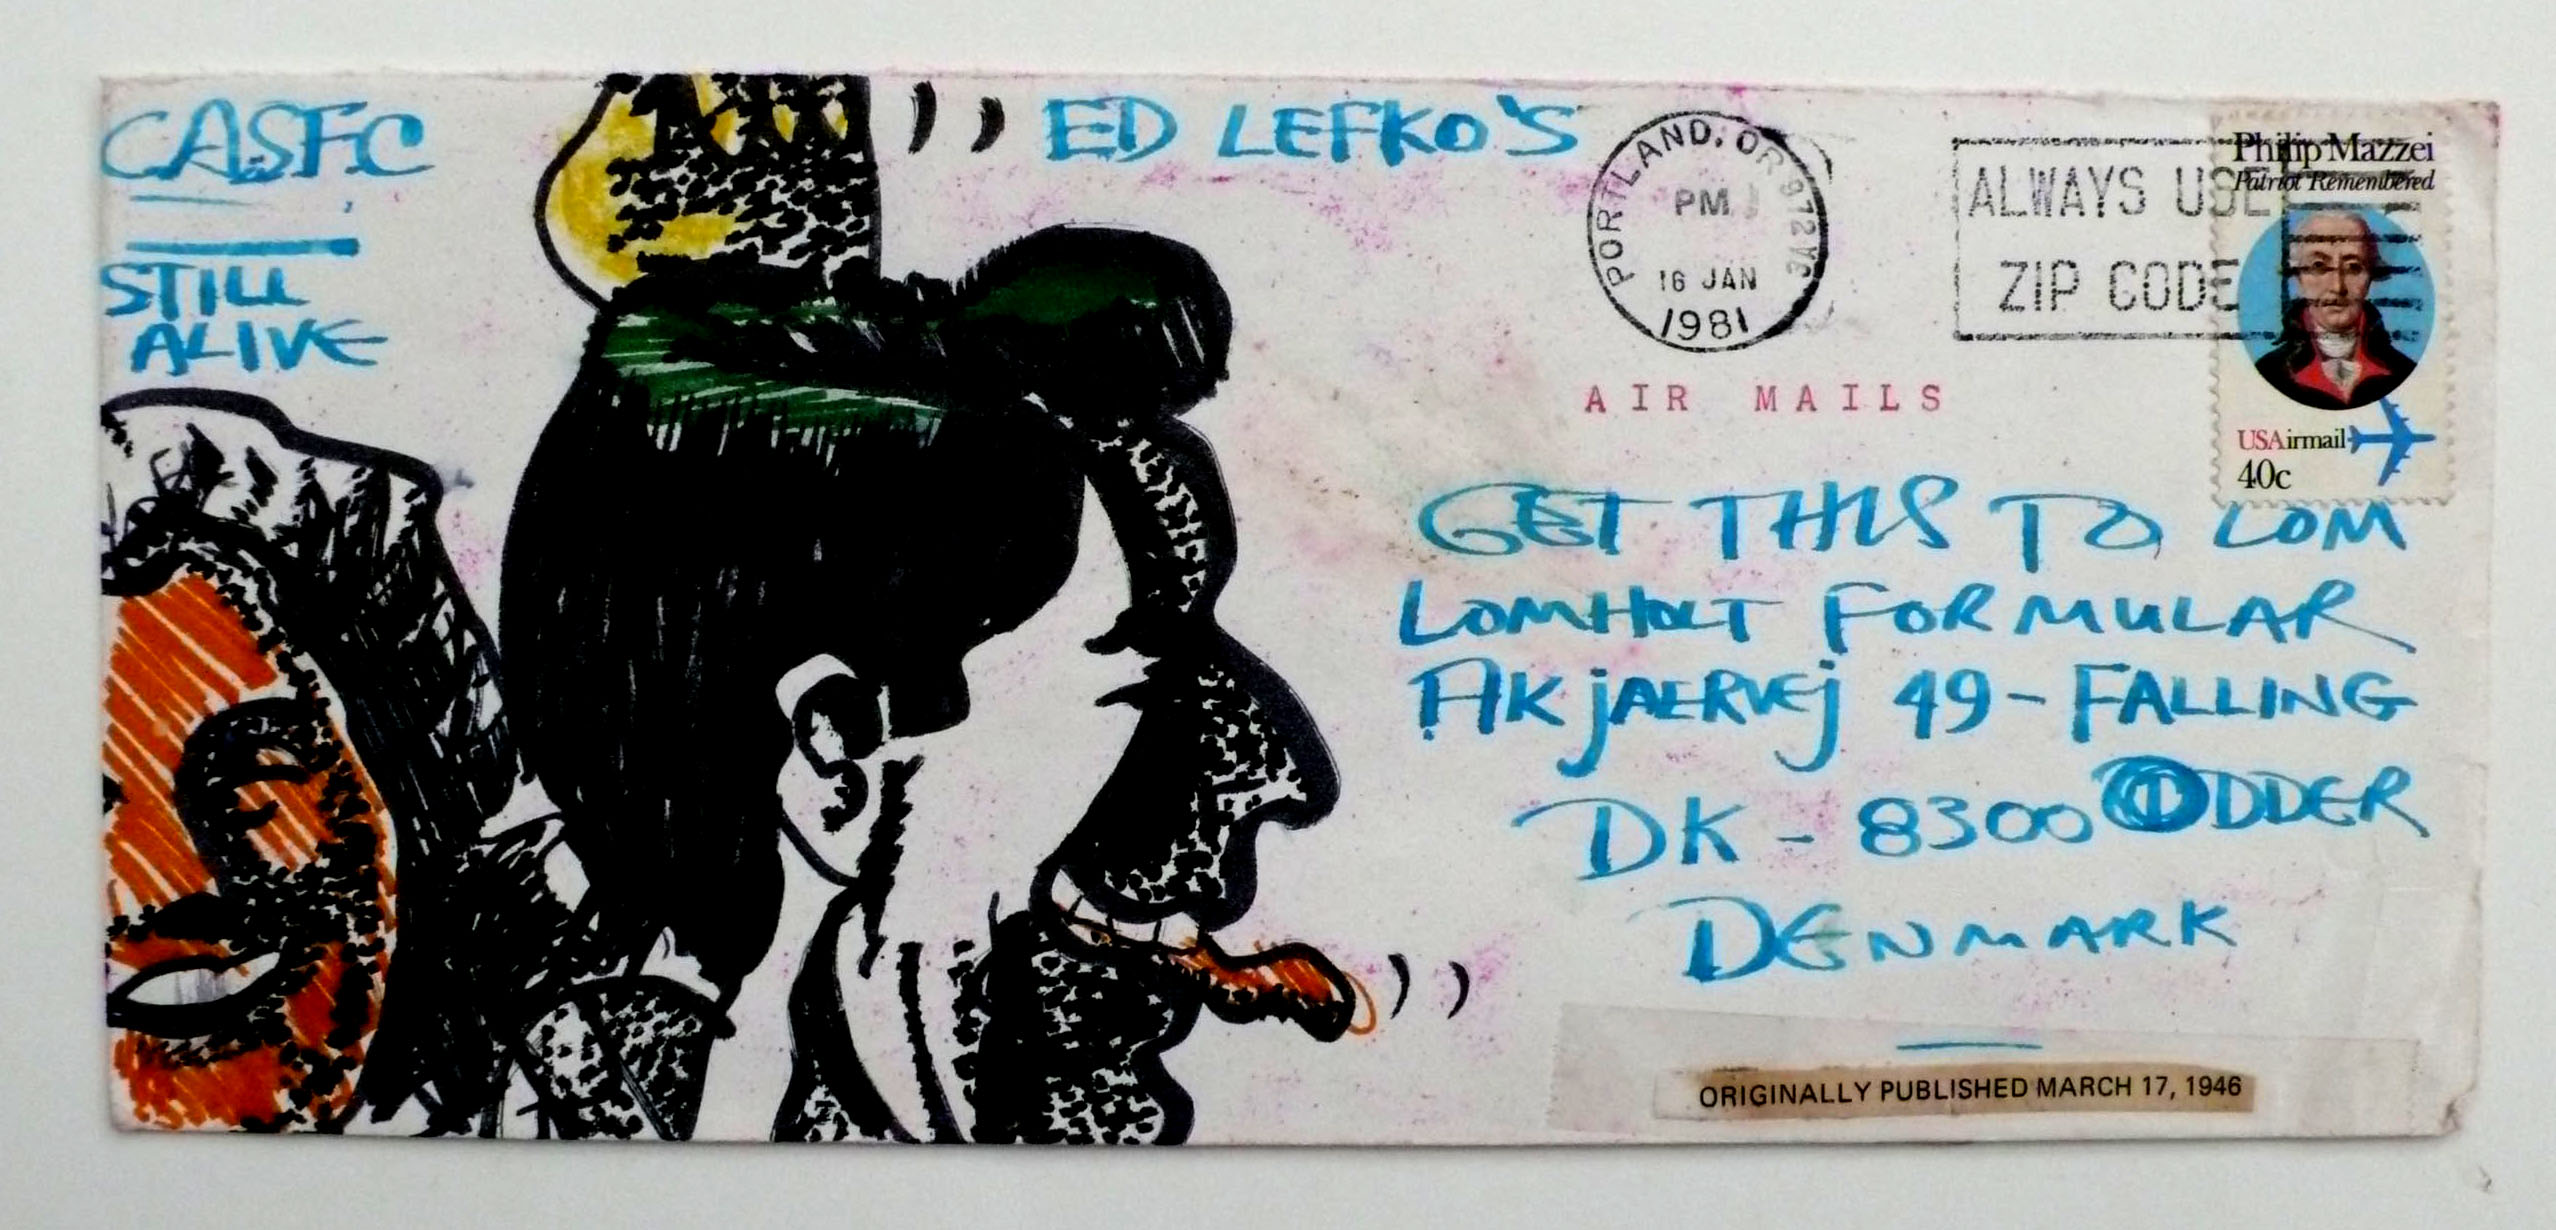 CASFC
STILL
ALIVE
ED LEFKO'S
PORTLAND, OR 972
PM
16 JAN
1981
ALWAYS USE
ZIP CODE
Philip Mazzei
Patriot Remembered
USAirmail
40c
AIR MAILS
GET THIS TO LOM
LOMHOLT FORMULAR
AKjAERVEj 49 - FALLING
DK - 8300 ODDER
DENMARK
ORIGINALLY PUBLISHED MARCH 17, 1946